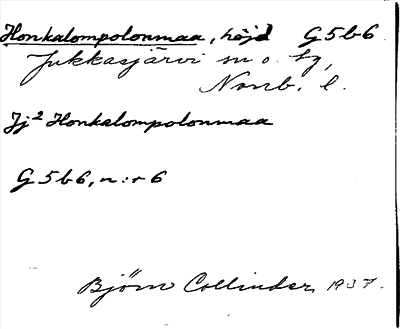 Honkalompolonmaa, höjd G5b6
Jukkasjärvi sn o. tg,
Norrb. l.
Jj² Honkalompolonmaa
G5b6, n:r 6
Björn Collinder 1937.